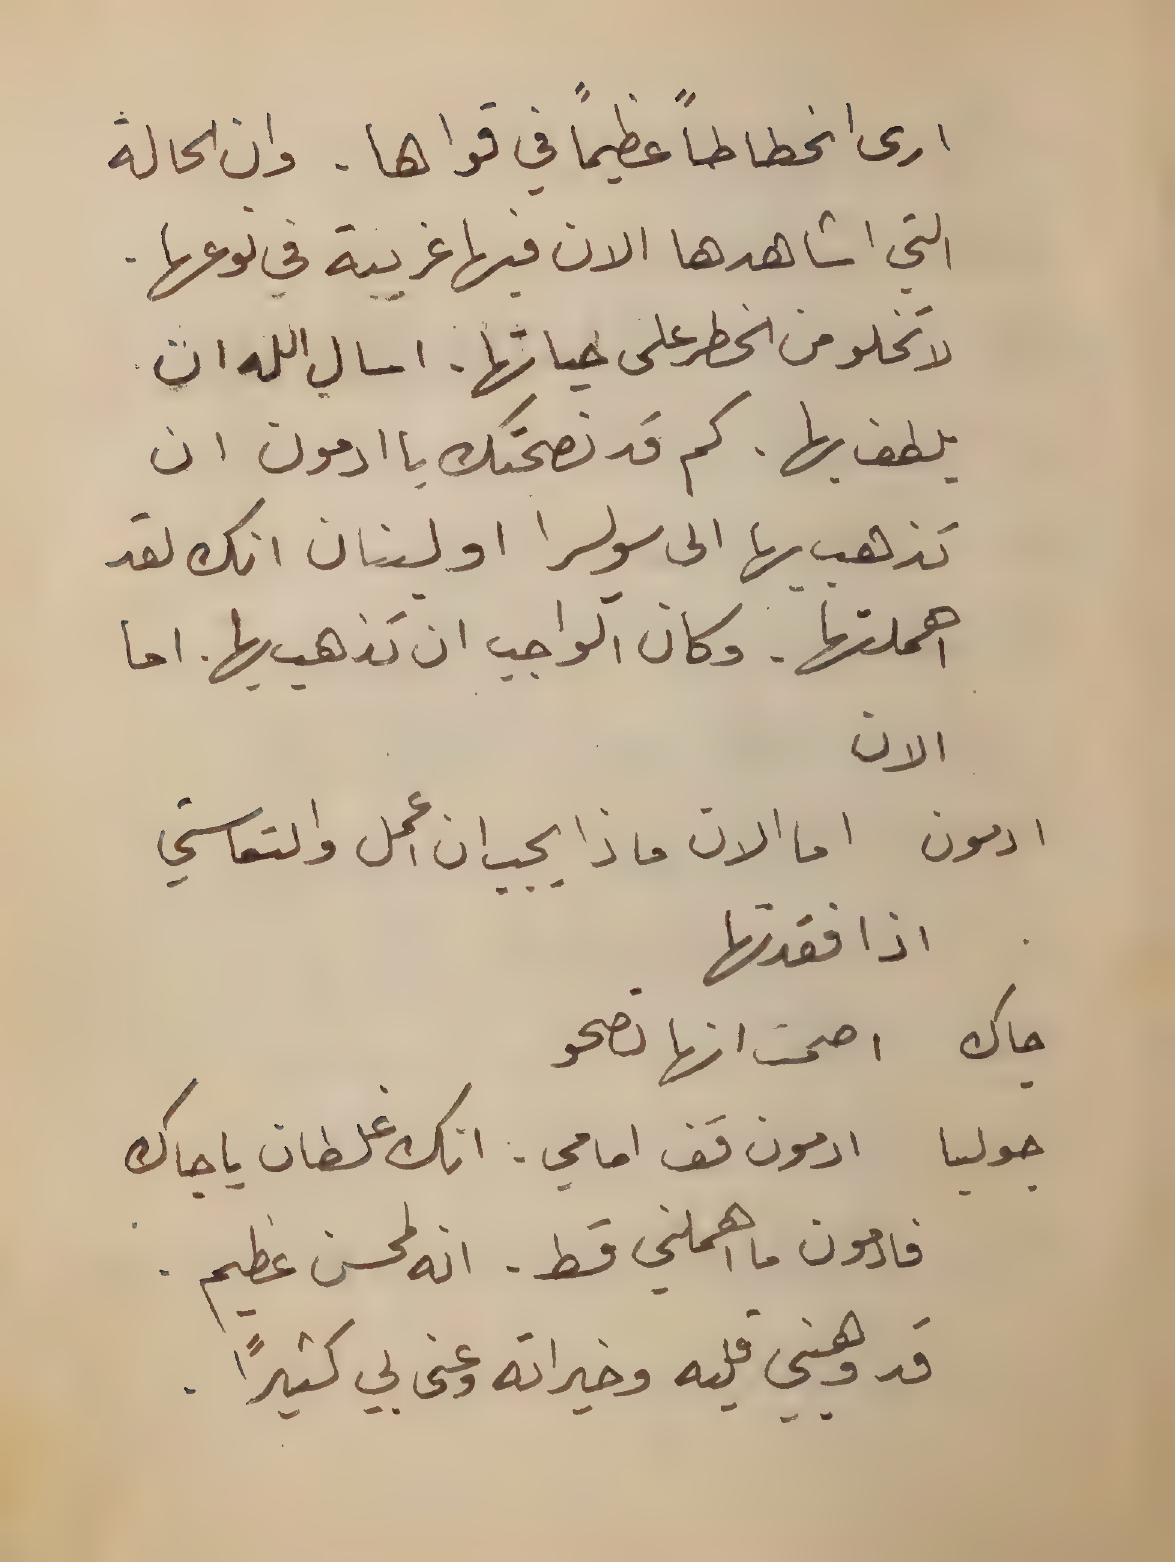 ارى انحطاطاً عظيماً في قواها . وان الحالة
التي اشاهدها الان فيها غريبة في نوعها .
لا تخلو من الخطر على حياتها . اسال الله ان
يلطف بها . كم قد نصحتك يا ادمون ان
تذهب بها الى سويسرا او لبنان انك لقد
اهملتها . وكان الواجب ان تذهب بها . اما
الان
ادمون اما الان ماذا يجب ان اعمل والتعاستي
اذا فقدتها
جاك اصمت انها تصحو
جوليا ادمون قف امامي . انك غلطان يا جاك
فادمون ما اهملني قط . انه لمحسن عظيم .
قد وهبني قلبه وخيراته وعنى بي كثيراً .